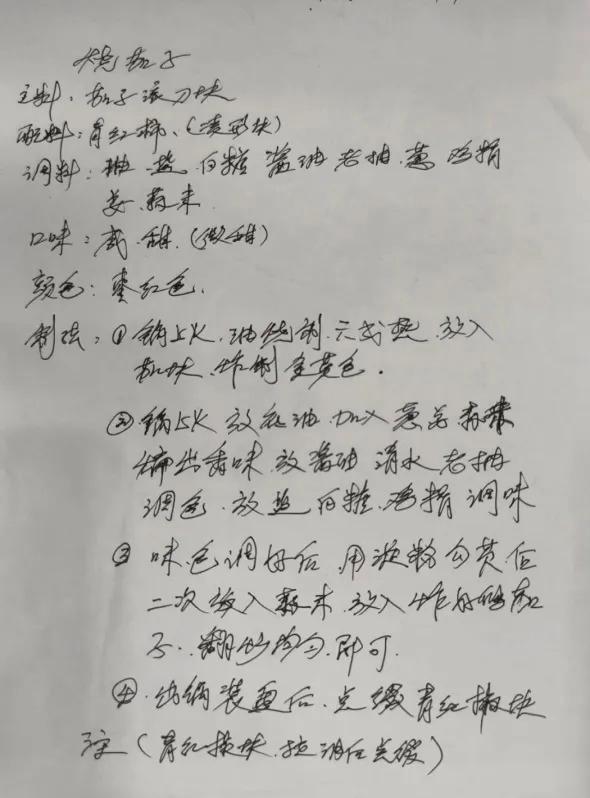 烧茄子
主料：茄子滚刀块
配料：青红椒、(菱形块)
调料：盐.白糖 酱油 老抽.葱 鸡精
姜.蒜末
口味：咸.甜.(微甜)
颜色：枣红色.
制法：①锅上火.油烧制.六成热.放入
茄块.炸制金黄色.
②锅上火 放底油.加入葱姜.蒜末
煸出香味.放酱油 清水 老抽
调色.放盐 白糖.鸡精 调味
③味.色调好后.用淀粉勾芡后
二次放入蒜末.放入炸好的茄
子..翻炒均匀.即可.
④.出锅装盘后.点缀青红椒块
注（青红椒块.拉油后点缀）